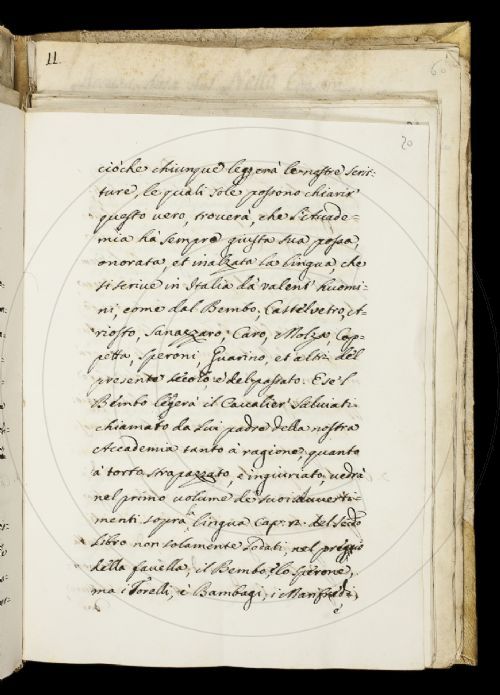 11.
60
20
ciòche chiunque leggerà le nostre scrit-
ture, le quali sole possono chiarir
questo vero, trouerà, che l'Accade-
mia hà sempre giusta sua possa,
onorata, et inalzata la lingua, che
si scriue in Italia dà valent' huomi-
ni, come dal Bembo, Castelvetro, A-
riosto, Sanazzaro, Caro, Molza, Cap-
pella, Speroni, Guarino, et altri del
presente secolo, e del passato. E se'l
Bembo legerà il Caualier Saluiati
chiamato da Lui padre della nostra
Accademia tanto à ragione, quanto
à torto strapazzato, e ingiuriato, uedrà
nel primo volume de suoi Auuerti-
menti soprà lingua Cap. 12. del Secdo
Libro non solamente Lodati, nel pregio
della fauella, il Bembo, lo Sperone,
ma i Torelli, i Bambagi, i Manfredi,
e